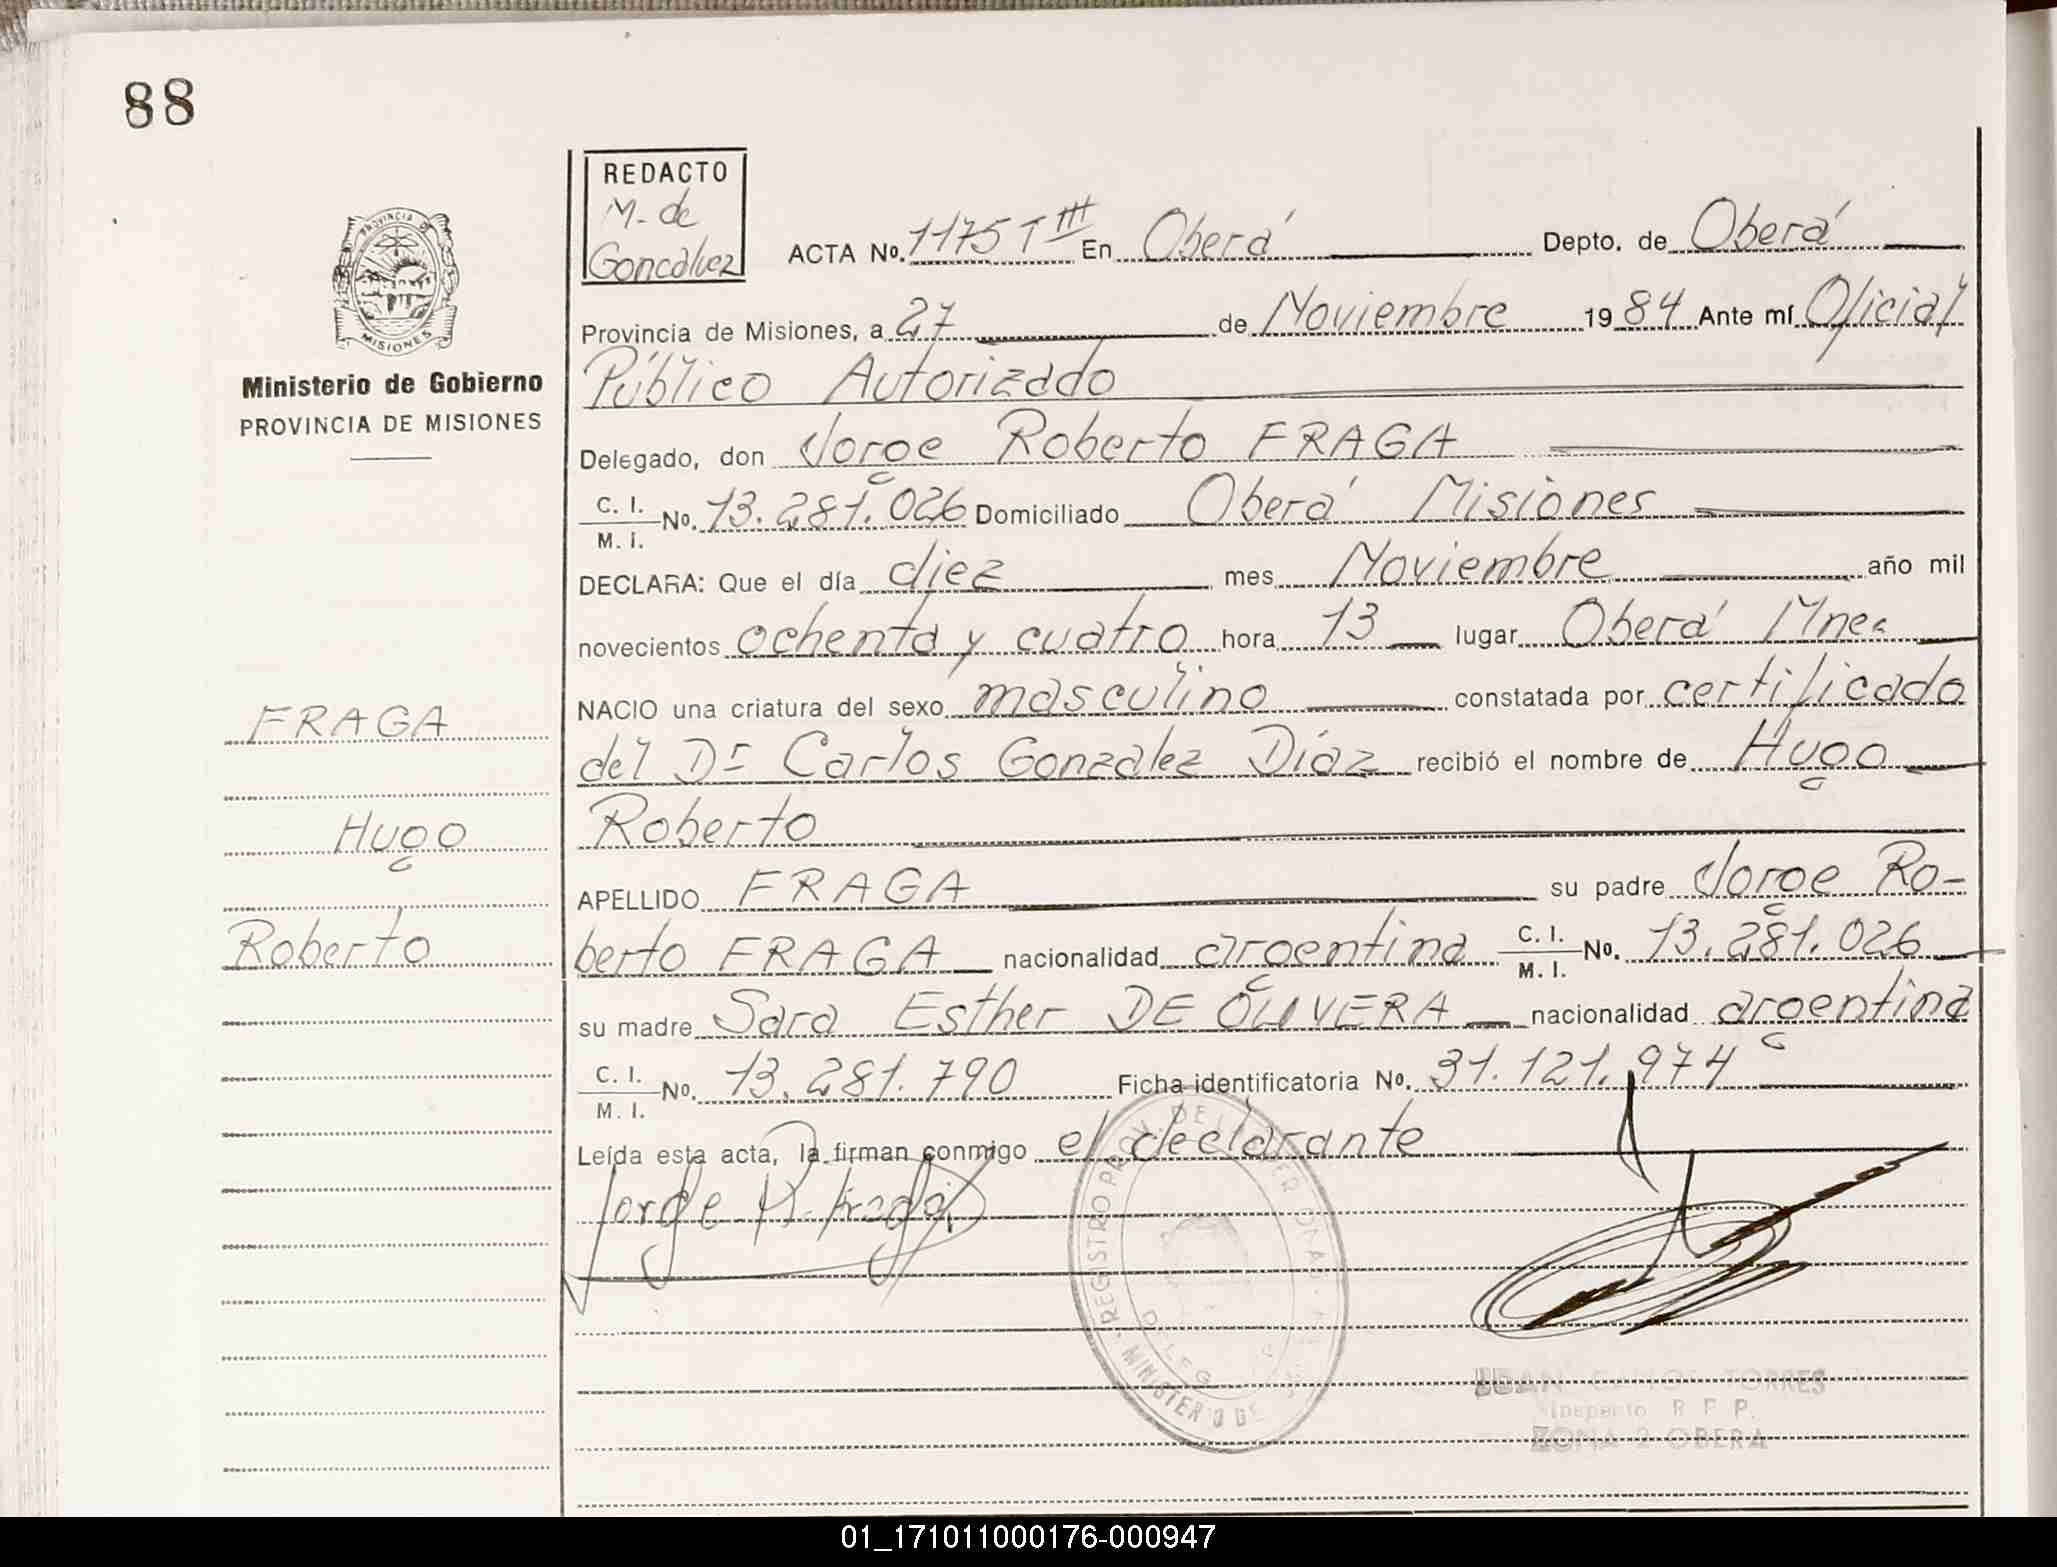 88
REDACTO
M. de
Goncalvez
ACTA No. 1175 T III En Oberá Depto. de Oberá
PROVINCIA DE
MISIONES
Provincia de Misiones, a 27 de Noviembre 1984 Ante mí Oficial
Ministerio de Gobierno
PROVINCIA DE MISIONES
Público Autorizado
Delegado, don Jorge Roberto FRAGA
C. I.
M. I. No. 13.281.026 Domiciliado Oberá Misiones
DECLARA: Que el día diez mes Noviembre año mil
novecientos ochenta y cuatro hora 13 lugar Oberá Mnes
NACIO una criatura del sexo masculino constatada por certificado
del Dr Carlos Gonzalez Díaz recibió el nombre de Hugo
Roberto
APELLIDO FRAGA su padre Jorge Ro-
berto FRAGA nacionalidad argentina C. I.
M. I. No. 13.281.026
su madre Sara Esther DE OLIVERA nacionalidad argentina
C. I.
M. I. No. 13.281.790 Ficha identificatoria No. 31.121.974
Leída esta acta, la firman conmigo el declarante
Jorge R. Fraga
FRAGA
Hugo
Roberto
REGISTRO PROV. DE LAS PERSONAS
MINISTERIO DE
JUAN CARLOS TORRES
Inspector R. P. P.
ZONA 2 OBERA
01_171011000176-000947